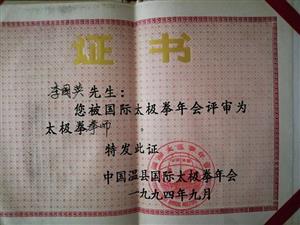 证书
李国英先生：
您被国际太极拳年会评审为
太极拳拳师。
特发此证
中国温县国际太极拳年会
一九九四年九月